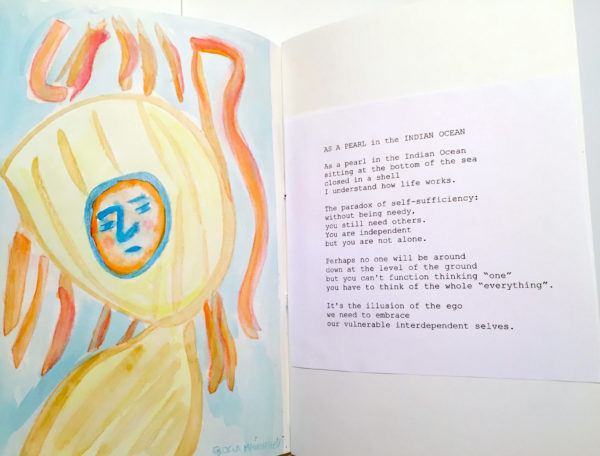 AS A PEARL in the INDIAN OCEAN
As a pearl in the Indian Ocean
sitting at the bottom of the sea
closed in a shell
I understand how life works.
The paradox of self-sufficiency:
without being needy,
you still need others.
You are independent
but you are not alone.
Perhaps no one will be around
down at the level of the ground
but you can't function thinking “one”
you have to think of the whole “everything”.
It's the illusion of the ego
we need to embrace
our vulnerable interdependent selves.